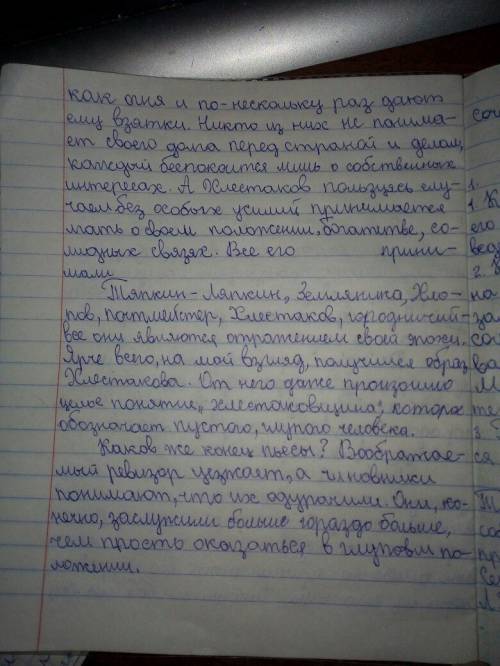 как огня и по-нескольку раз дают
ему взятки. Никто из них не понима-
ет своего долга перед страной и делом,
каждый беспокоится лишь о собственных
интересах. А Хлестаков пользуясь слу-
чаем без особых усилий принимается
лгать о своем положении, богатстве, со-
лидных связях. Все его прини-
мали
Тяпкин-Ляпкин, Земляника, Хло-
пов, постмейстер, Хлестаков, городничий-
все они являются отражением своей эпохи.
Ярче всего, на мой взгляд, получился образ
Хлестакова. От него даже произошло
целое понятие „хлестаковщина", которое
обозначает пустого, глупого человека.
Каков же конец пьесы? Воображае-
мый ревизор уезжает, а чиновники
понимают, что их одурачили. Они, ко-
нечно, заслужили больше гораздо больше,
чем просто оказаться в глупом по-
ложении.